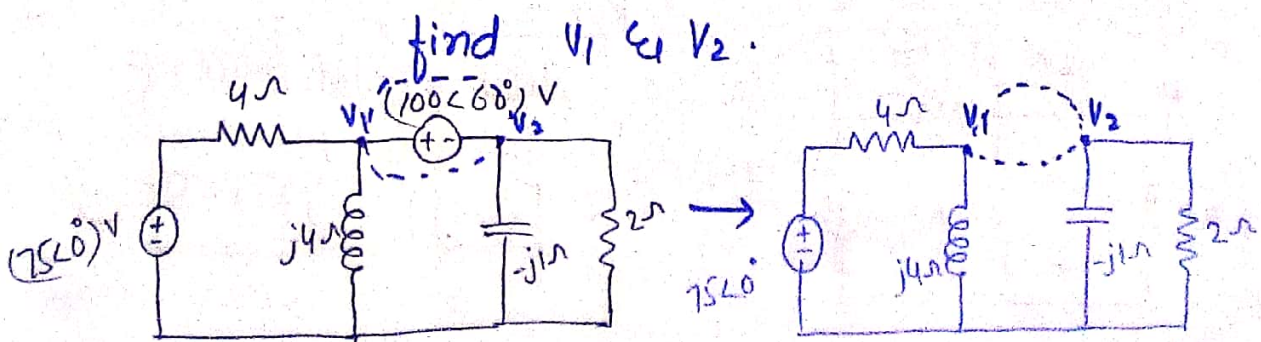 find V₁ & V₂.
4Ω
(100<60°) V
V₁
+ -
V₂
(75<0°) V
+
-
j4Ω
-j1Ω
2Ω
→
4Ω
V₁
V₂
75<0°
+
-
j4Ω
-j1Ω
2Ω